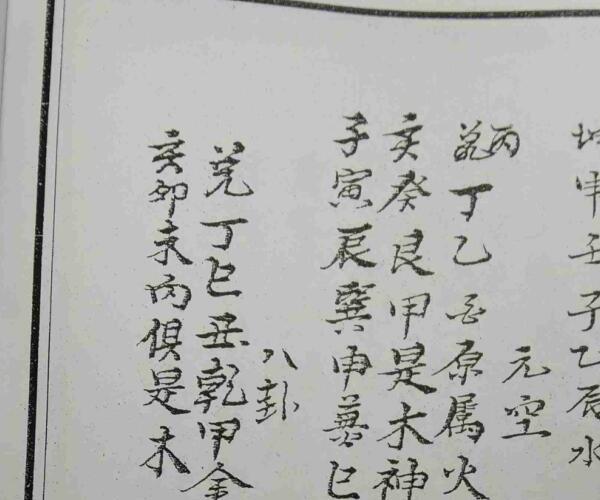 坤申壬子乙辰水
元空
丙丁乙酉原屬火
亥癸艮甲是木神
子寅辰巽申兼巳
八卦
兌丁巳丑乾甲金
亥卯未丙俱是木